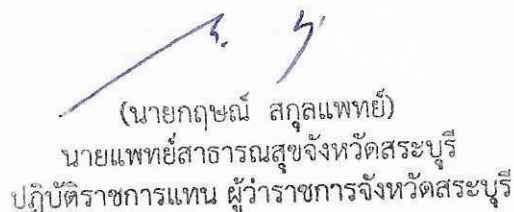 (นายกฤษณ์ สกุลแพทย์)
นายแพทย์สาธารณสุขจังหวัดสระบุรี
ปฏิบัติราชการแทน ผู้ว่าราชการจังหวัดสระบุรี